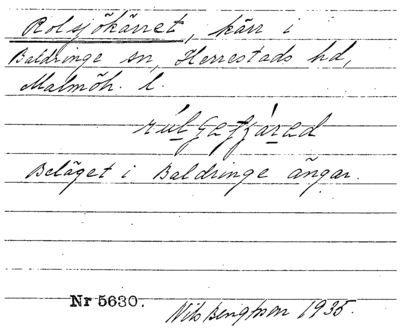 Rolsjökärret, kärr i
Baldringe sn, Herrestads hd,
Malmöh. l.
Beläget i Baldringe ängar.
Nr 5630.
Nils Bengtson 1935.